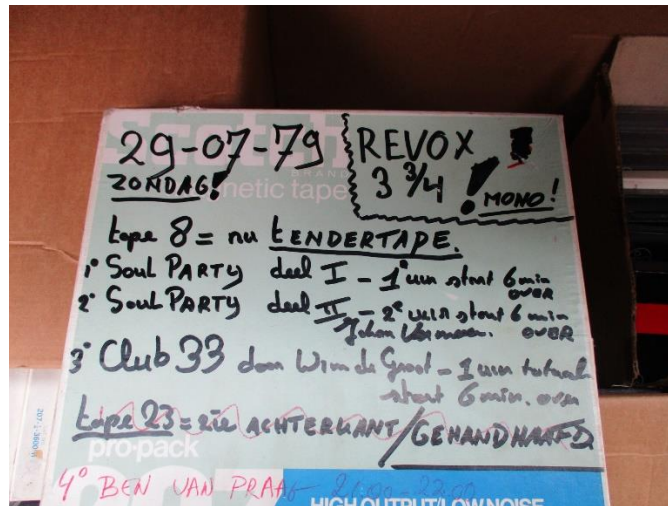 Scotch
BRAND
magnetic tape
29-07-79
ZONDAG!
REVOX
3 3/4 ! MONO!
tape 8 = nu TENDERTAPE.
1° Soul PARTY deel I - 1e uur start 6 min OVER
2° Soul PARTY deel II - 2e uur start 6 min OVER
Johan Vermeer.
3° Club 33 dom Wim de Groot - 1 uur totaal
start 6 min. over
tape 23 = zie ACHTERKANT / GEHANDHAAFD.
pro-pack
207
4° BEN VAN PRAAG 21.00-22.00
HIGH OUTPUT/LOW NOISE